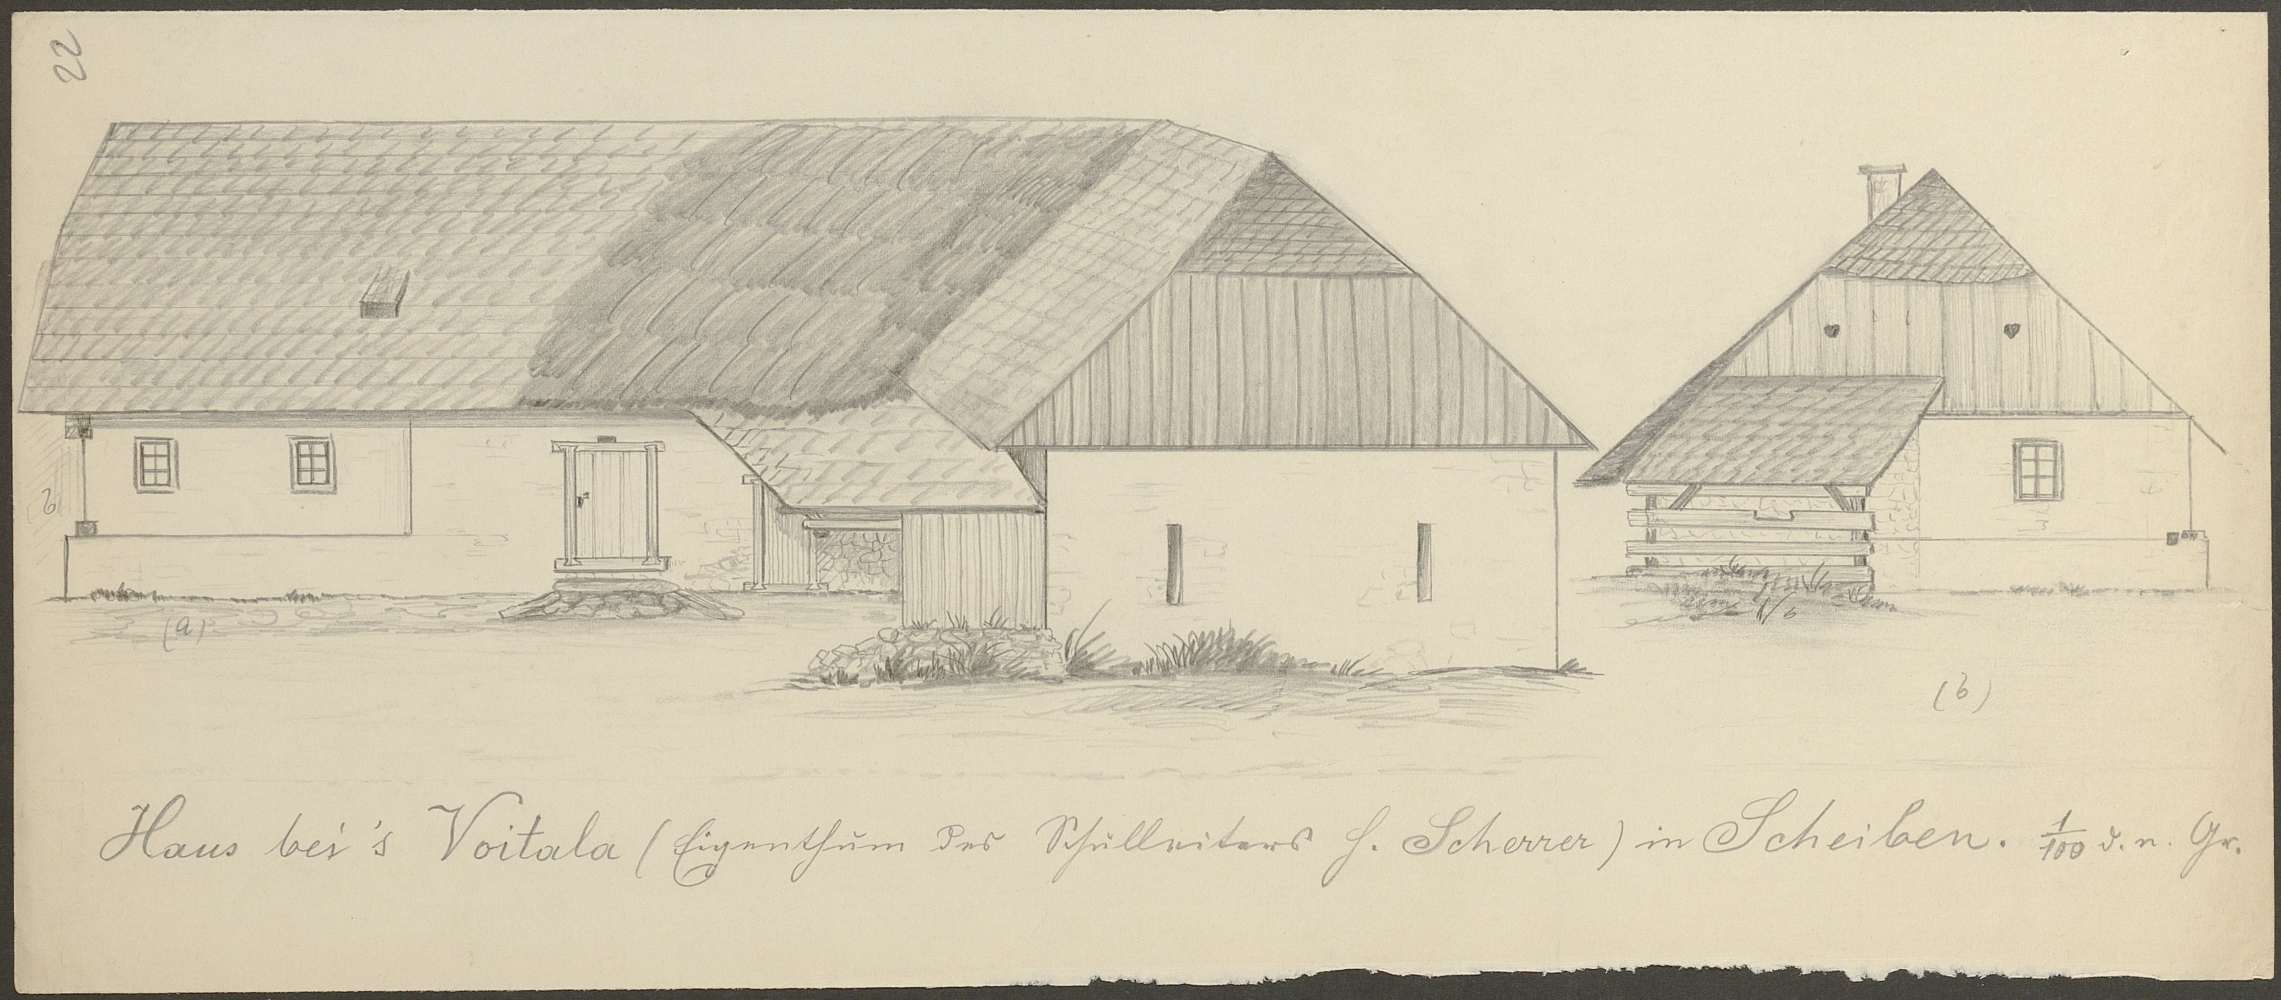 22
b
(a)
(b)
Haus bei's Voitala (Eigenthum des Schulleiters H. Scherrer) in Scheiben. 1/100 d. n. Gr.